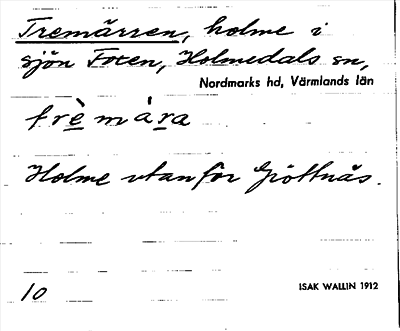 Tremärren, holme i
sjön Foxen, Holmedals sn,
Nordmarks hd, Värmlands län
Holme utanför Gröttnäs.
10
ISAK WALLIN 1912